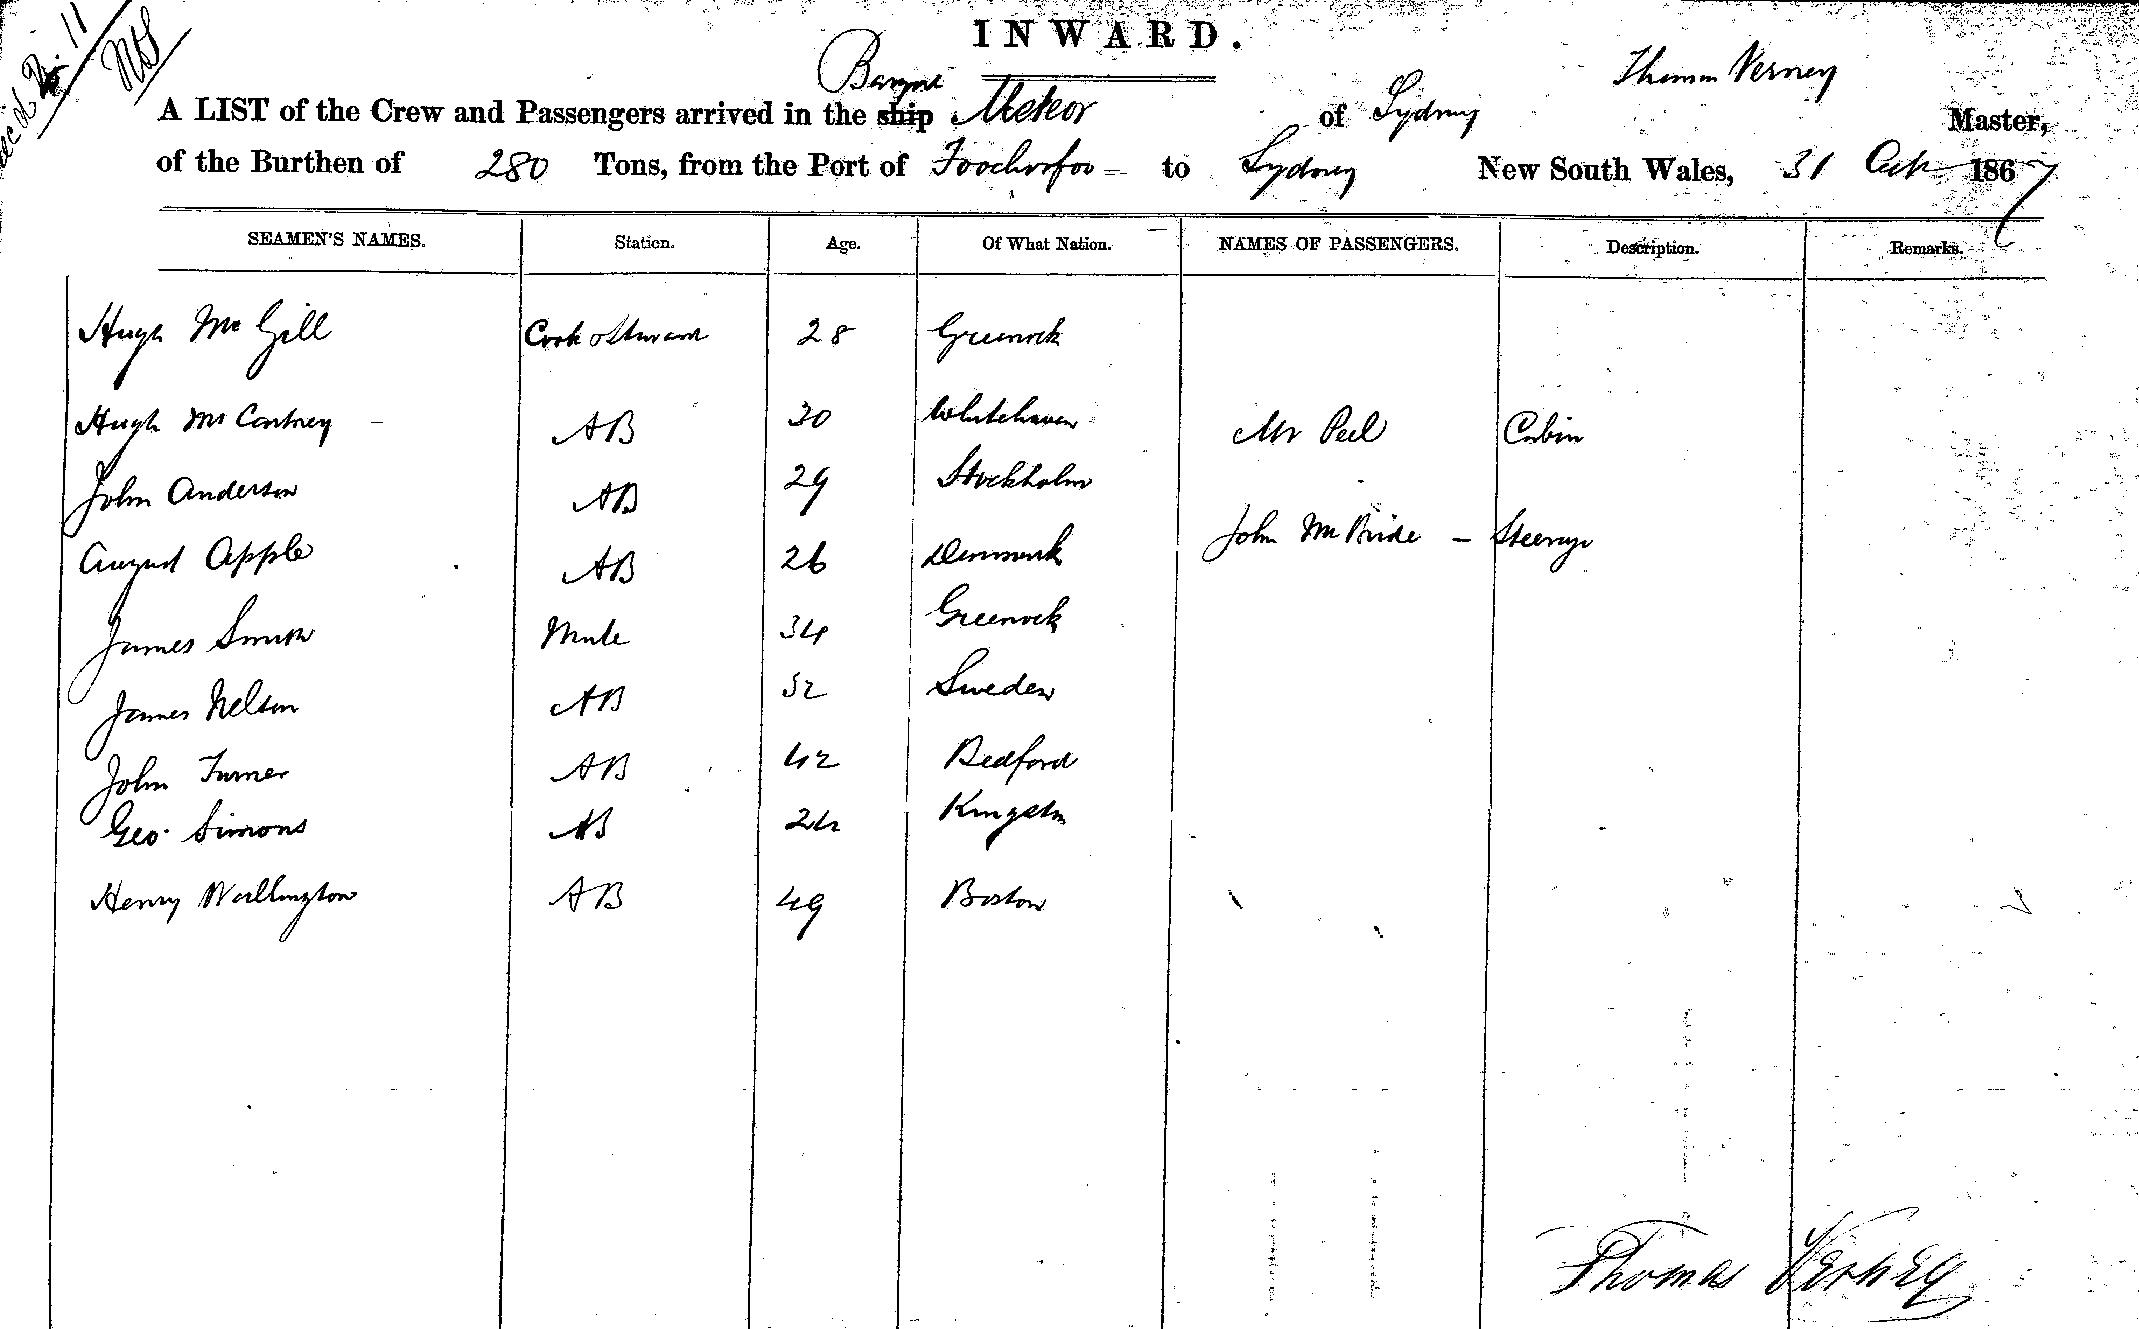 Rec'd 11
INWARD.
Barque
A LIST of the Crew and Passengers arrived in the ship Meteor of Sydney Thomas Verney Master,
of the Burthen of 280 Tons, from the Port of Foochowfoo to Sydney New South Wales, 31 Oct 1867
SEAMEN'S NAMES. Station. Age. Of What Nation. NAMES OF PASSENGERS. Description. Remarks.
Hugh McGill Cook & Steward 28 Greenock
Hugh McCartney AB 30 Whitehaven Mr Peel Cabin
John Anderson AB 29 Stockholm
August Apple AB 26 Denmark John McBride - Steerage
James Smith Mate 34 Greenock
James Nelson AB 32 Sweden
John Turner AB 42 Bedford
Geo. Simons AB 24 Kingston
Henry Wallington AB 49 Boston
Thomas Verney